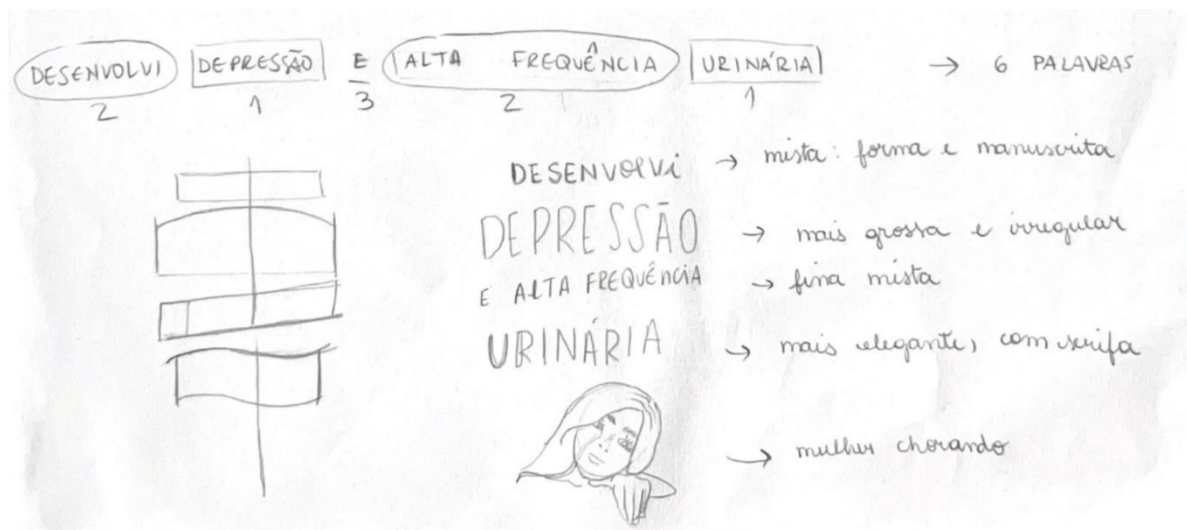 DESENVOLVI DEPRESSÃO E ALTA FREQUÊNCIA URINÁRIA → 6 PALAVRAS
2 1 3 2 1
DESENVOLVI → mista: forma e manuscrita
DEPRESSÃO → mais grossa e irregular
E ALTA FREQUÊNCIA → fina mista
URINÁRIA → mais elegante, com serifa
→ mulher chorando